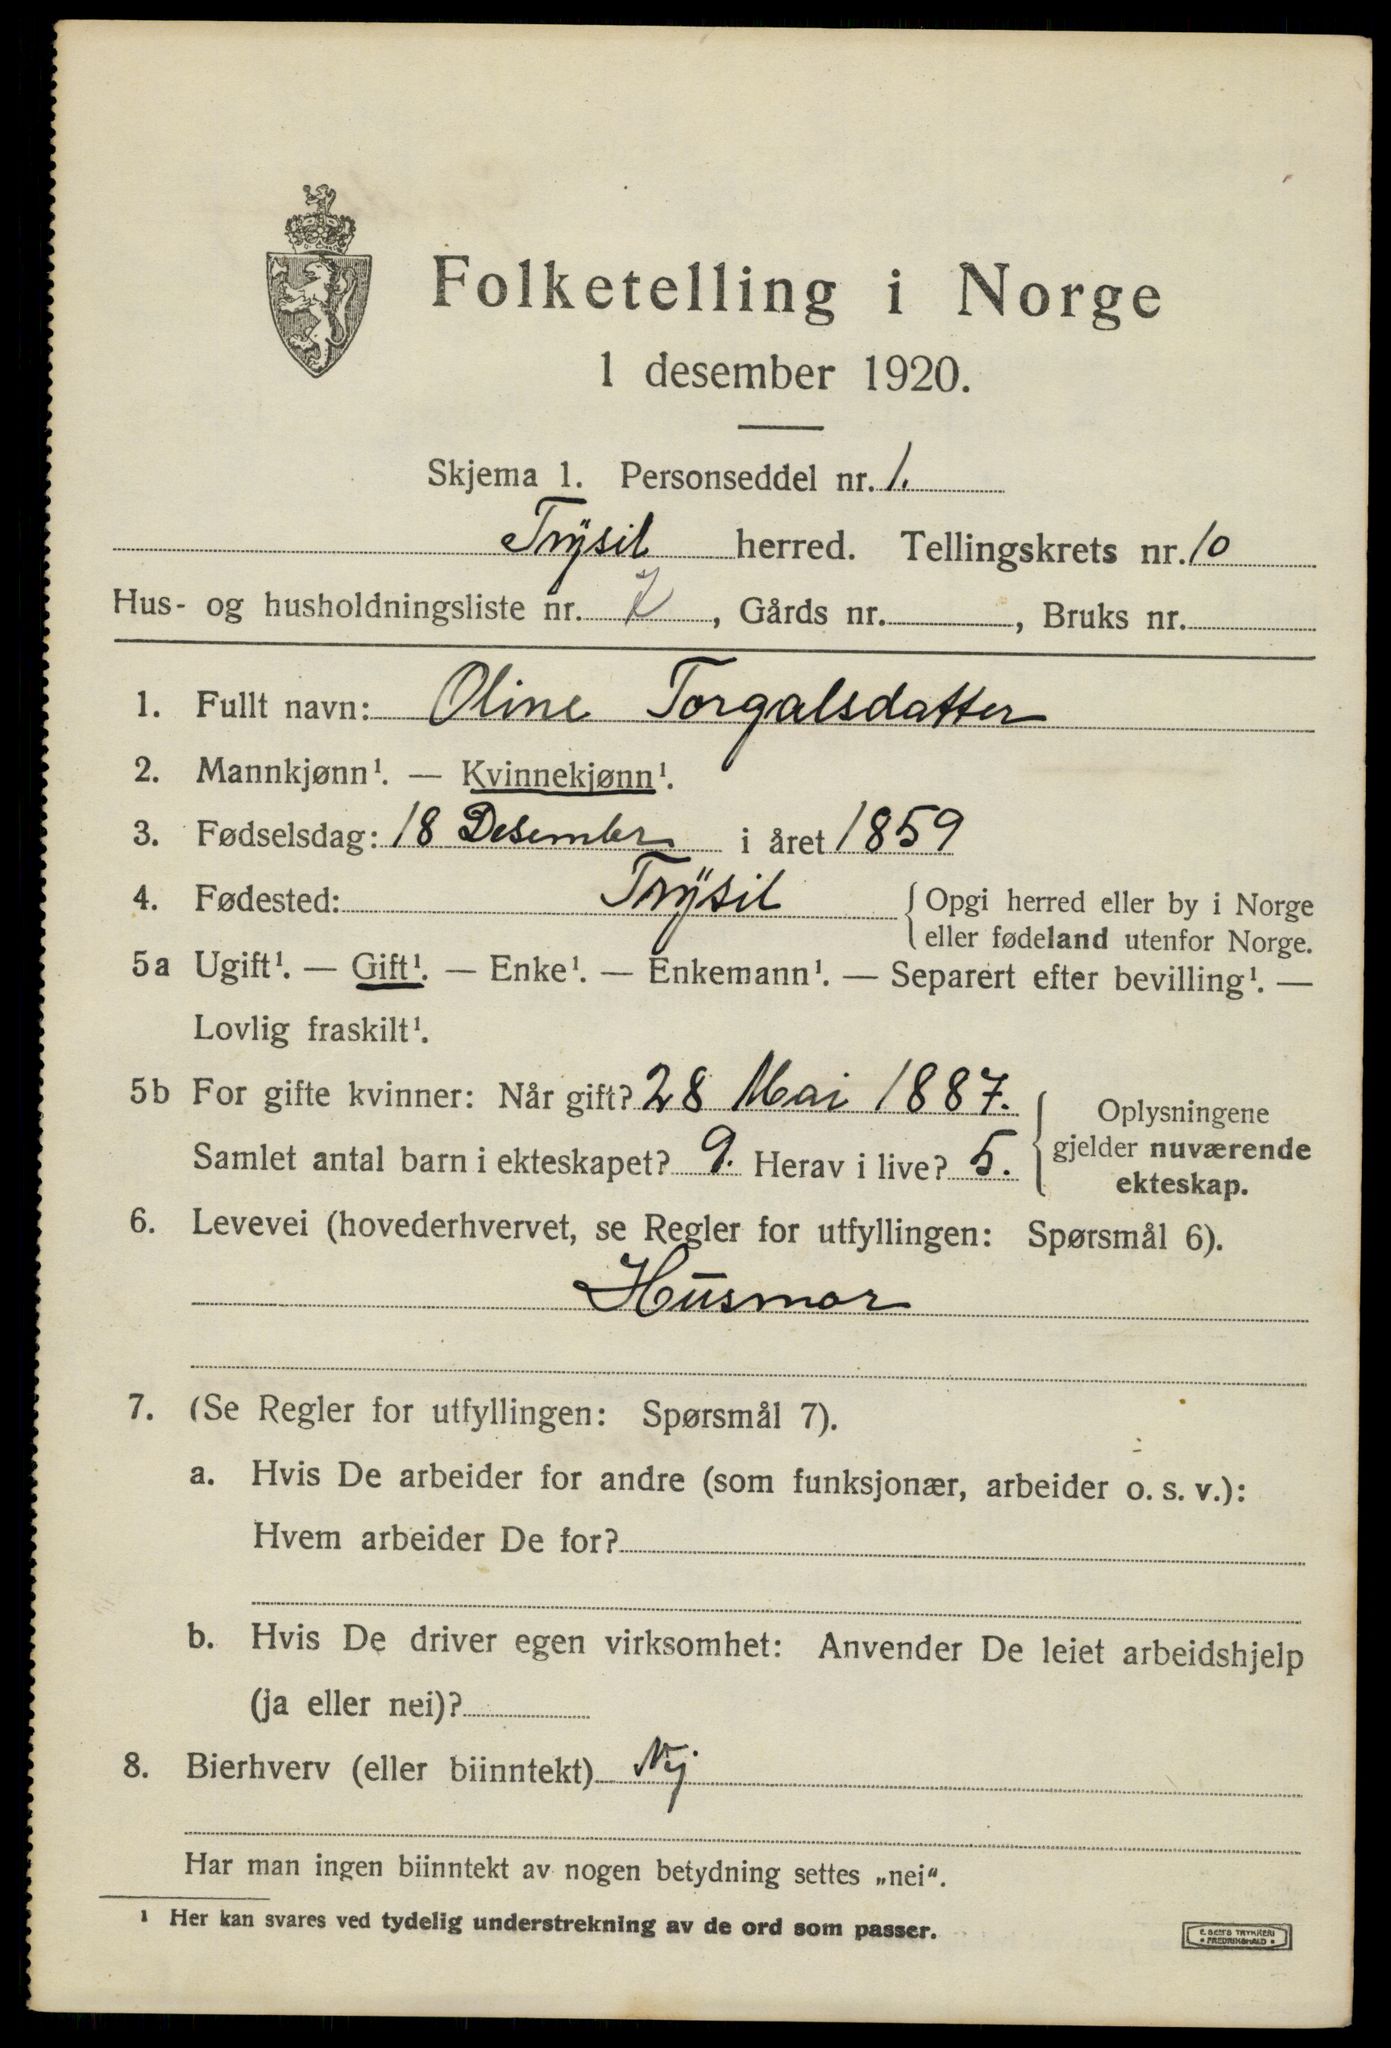 Folketelling i Norge
1 desember 1920.
Skjema 1. Personseddel nr. 1.
Trysil herred. Tellingskrets nr. 10
Hus- og husholdningsliste nr. 7, Gårds nr. , Bruks nr.
1. Fullt navn: Oline Torgalsdatter
2. Mannkjønn¹. — Kvinnekjønn¹.
3. Fødselsdag: 18 Desember i året 1859
4. Fødested: Trysil { Opgi herred eller by i Norge
eller fødeland utenfor Norge.
5a Ugift¹. — Gift¹. — Enke¹. — Enkemann¹. — Separert efter bevilling¹. —
Lovlig fraskilt¹.
5b For gifte kvinner: Når gift? 28 Mai 1887. { Oplysningene
gjelder nuværende
Samlet antal barn i ekteskapet? 9. Herav i live? 5.
ekteskap.
6. Levevei (hovederhvervet, se Regler for utfyllingen: Spørsmål 6).
Husmor
7. (Se Regler for utfyllingen: Spørsmål 7).
a. Hvis De arbeider for andre (som funksjonær, arbeider o. s. v.):
Hvem arbeider De for?
b. Hvis De driver egen virksomhet: Anvender De leiet arbeidshjelp
(ja eller nei)?
8. Bierhverv (eller biinntekt) Nej
Har man ingen biinntekt av nogen betydning settes „nei“.
¹ Her kan svares ved tydelig understrekning av de ord som passer.
E. SEM'S TRYKKERI
• FREDRIKSHALD •